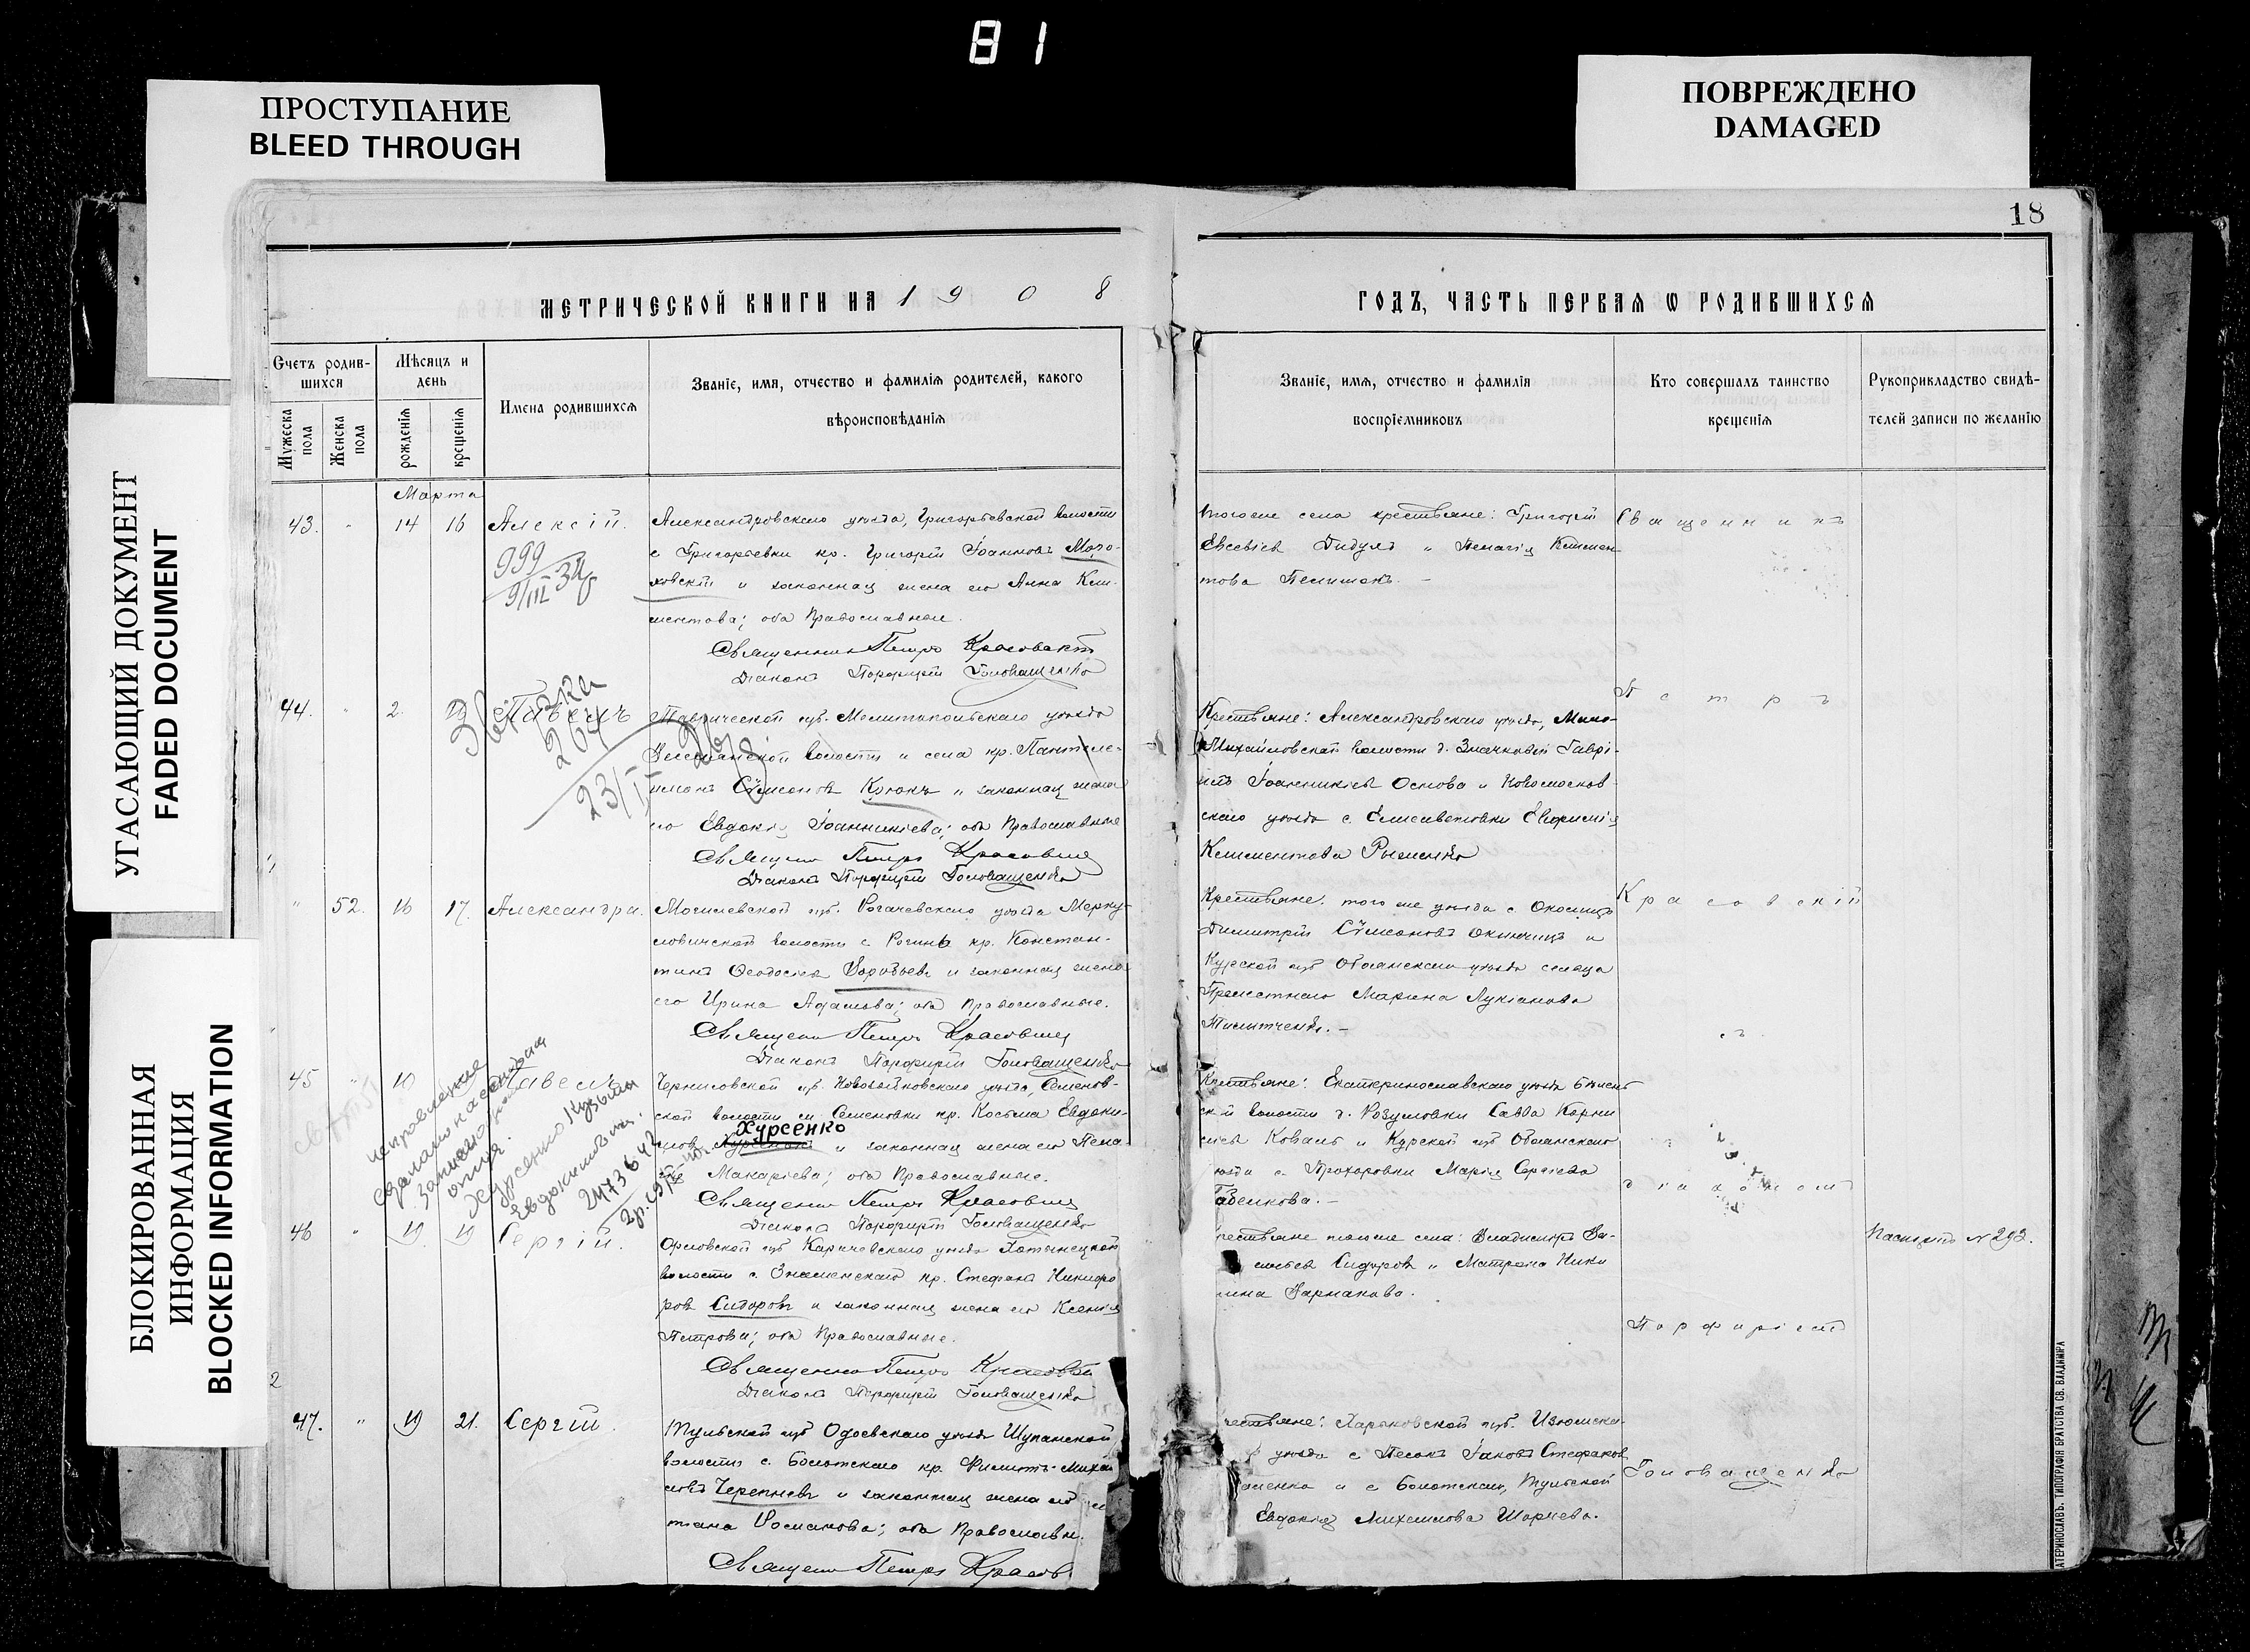 81
ПРОСТУПАНИЕ
BLEED THROUGH
ПОВРЕЖДЕНО
DAMAGED
УГАСАЮЩИЙ ДОКУМЕНТ
FADED DOCUMENT
БЛОКИРОВАННАЯ
ИНФОРМАЦИЯ
BLOCKED INFORMATION
18
МЕТРИЧЕСКОЙ КНИГИ НА 1908
ГОДЪ, ЧАСТЬ ПЕРВАЯ Ѡ РОДИВШИХСЯ
Счетъ родив-
шихся
Мужеска пола
Женска пола
Мѣсяцъ и
день
рожденія
крещенія
Имена родившихся
Званіе, имя, отчество и фамилія родителей, какого
вѣроисповѣданія
Званіе, имя, отчество и фамилія
воспріемниковъ
Кто совершалъ таинство
крещенія
Рукоприкладство свидѣ-
телей записи по желанію
Марта
43. " 14 16 Алексій.
999
9/III
Александровскаго уѣзда, Григорьевской волости
с Григорьевки кр. Григорій Іоанновъ
и законная жена его Анна Кли-
ментова; оба Православные.
Священникъ Петръ Красовскій
Діаконъ Порфирій Головащенко
тогоже села крестьяне: Григорій
Евсевіевъ Дидукъ и Пелагія Климен-
това
Священникъ
44. " 2. 19 Павелъ
264
23/
Таврической губ. Мелитопольскаго уѣзда
волости и села кр. Пантеле-
имонъ Сѵмеоновъ и законная жена
его Евдокія Іоанникіева; оба Православные
Священник Петръ Красовскій
Діаконъ Порфирій Головащенко
Крестьяне: Александровскаго уѣзда,
Михайловской волости д. Гаврі-
илъ Іоанникіевъ Основа и Новомосков-
скаго уѣзда с. Елисаветовки Евфимія
Климентова
Петръ
" 52. 16 17. Александра.
Могилевской губ. Рогачевскаго уѣзда Мерку-
ловичской волости с. Рогинь кр. Констан-
тинъ Ѳеодосіевъ Воробьевъ и законная жена
его Ирина Адамова; оба Православные.
Священник Петръ Красовскій
Діаконъ Порфирій Головащенко
Крестьяне: того же уѣзда с
Димитрій Сѵмеоновъ и
Курской губ Обоянскаго уѣзда
Марина Лукіанова
Красовскій
съ
45 " 10 Павелъ
исправление
сделано на основании
записи
отца.
Хурсенко Кузьма
Евдокимович.
2473642
Черниговской губ. Новозыбковскаго уѣзда, Семенов-
ской волости м. Семеновки кр. Косьма Евдоки-
мовъ Хурсенко и законная жена его Пела-
гія Макаріева; оба Православные.
Священник Петръ Красовскій
Діаконъ Порфирій Головащенко
Крестьяне: Екатеринославскаго уѣзда
ской волости д. Розумовки Савва Корни-
ліевъ Коваль и Курской губ Обоянскаго
уѣзда с. Прохоровки Марія Сергіева
діакономъ
46 " 19 19 Сергій.
Орловской губ Карачевскаго уѣзда Хотынецкой
волости с. Знаменскаго кр. Стефанъ Никифо-
ровъ Сидоровъ и законная жена его Ксенія
Петрова; оба Православные.
Священник Петръ Красовскій
Діаконъ Порфирій Головащенко
Крестьяне тогоже села: Владиміръ Ва-
сильевъ Сидоровъ и Матрона
Паспортъ № 292.
Порфиріемъ
47. " 19 21. Сергій.
Тульской губ Одоевскаго уѣзда Шупанской
волости с. Болотскаго кр. Филиппъ Михаи-
ловъ Черепневъ и законная жена его
тіана Романова; оба Православн.
Священник Петръ Красов
крестьяне: Харьковской губ. Изюмска-
го уѣзда с Песокъ Іаковъ Стефановъ
и с Болотскаго, Тульской
Евдокія Михаилова
Головащенко
2
АТЕРИНОСЛАВЪ. ТИПОГРАФІЯ БРАТСТВА СВ. ВЛАДИМІРА